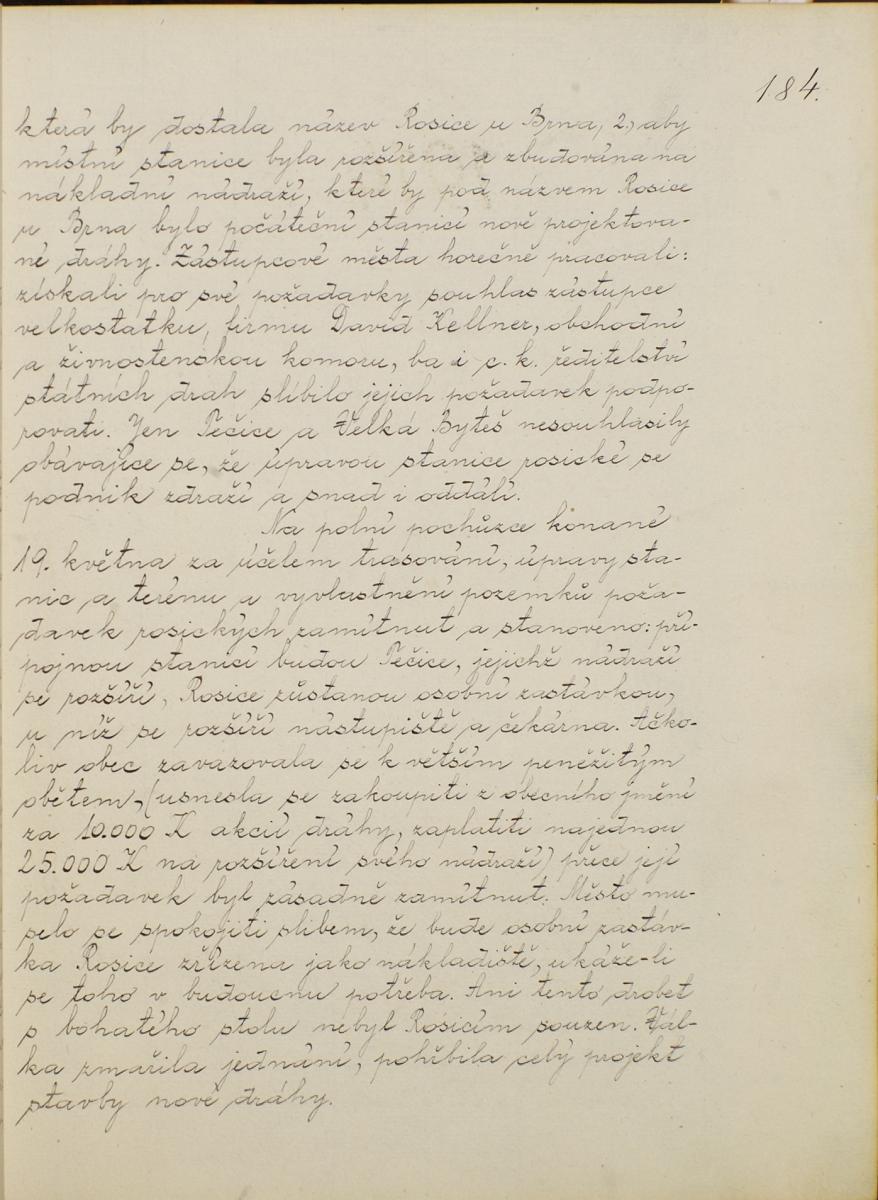 184.
která by dostala název Rosice u Brna, 2., aby
místní stanice byla rozšířena a zbudována na
nákladní nádraží, které by pod názvem Rosice
u Brna bylo počáteční stanicí nově projektova-
né dráhy. Zástupcové města horečně pracovali:
získali pro své požadavky souhlas zástupce
velkostatku, firmu David Kellner, obchodní
a živnostenskou komoru, ba i c. k. ředitelství
státních drah slíbilo jejich požadavek podpo-
rovati. Jen Tečice a Velká Byteš nesouhlasily
obávajíce se, že úpravou stanice rosické se
podnik zdraží a snad i oddálí.
Na polní pochůzce konané
19. května za účelem trasování, úpravy sta-
nic a terénu a vyvlastnění pozemků poža-
davek rosických zamítnut a stanoveno: pří-
pojnou stanicí budou Tečice, jejichž nádraží
se rozšíří, Rosice zůstanou osobní zastávkou,
u níž se rozšíří nástupiště a čekárna. Ačko-
liv obec zavazovala se k větším peněžitým
obětem, (usnesla se zakoupiti z obecního jmění
za 10.000 K akcií dráhy, zaplatiti najednou
25.000 K na rozšíření svého nádraží) přece její
požadavek byl zásadně zamítnut. Město mu-
selo se spokojiti slibem, že bude osobní zastáv-
ka Rosice zřízena jako nákladiště, ukáže-li
se toho v budoucnu potřeba. Ani tento drobet
s bohatého stolu nebyl Rosicím souzen. Vál-
ka zmařila jednání, pohřbila celý projekt
stavby nové dráhy.